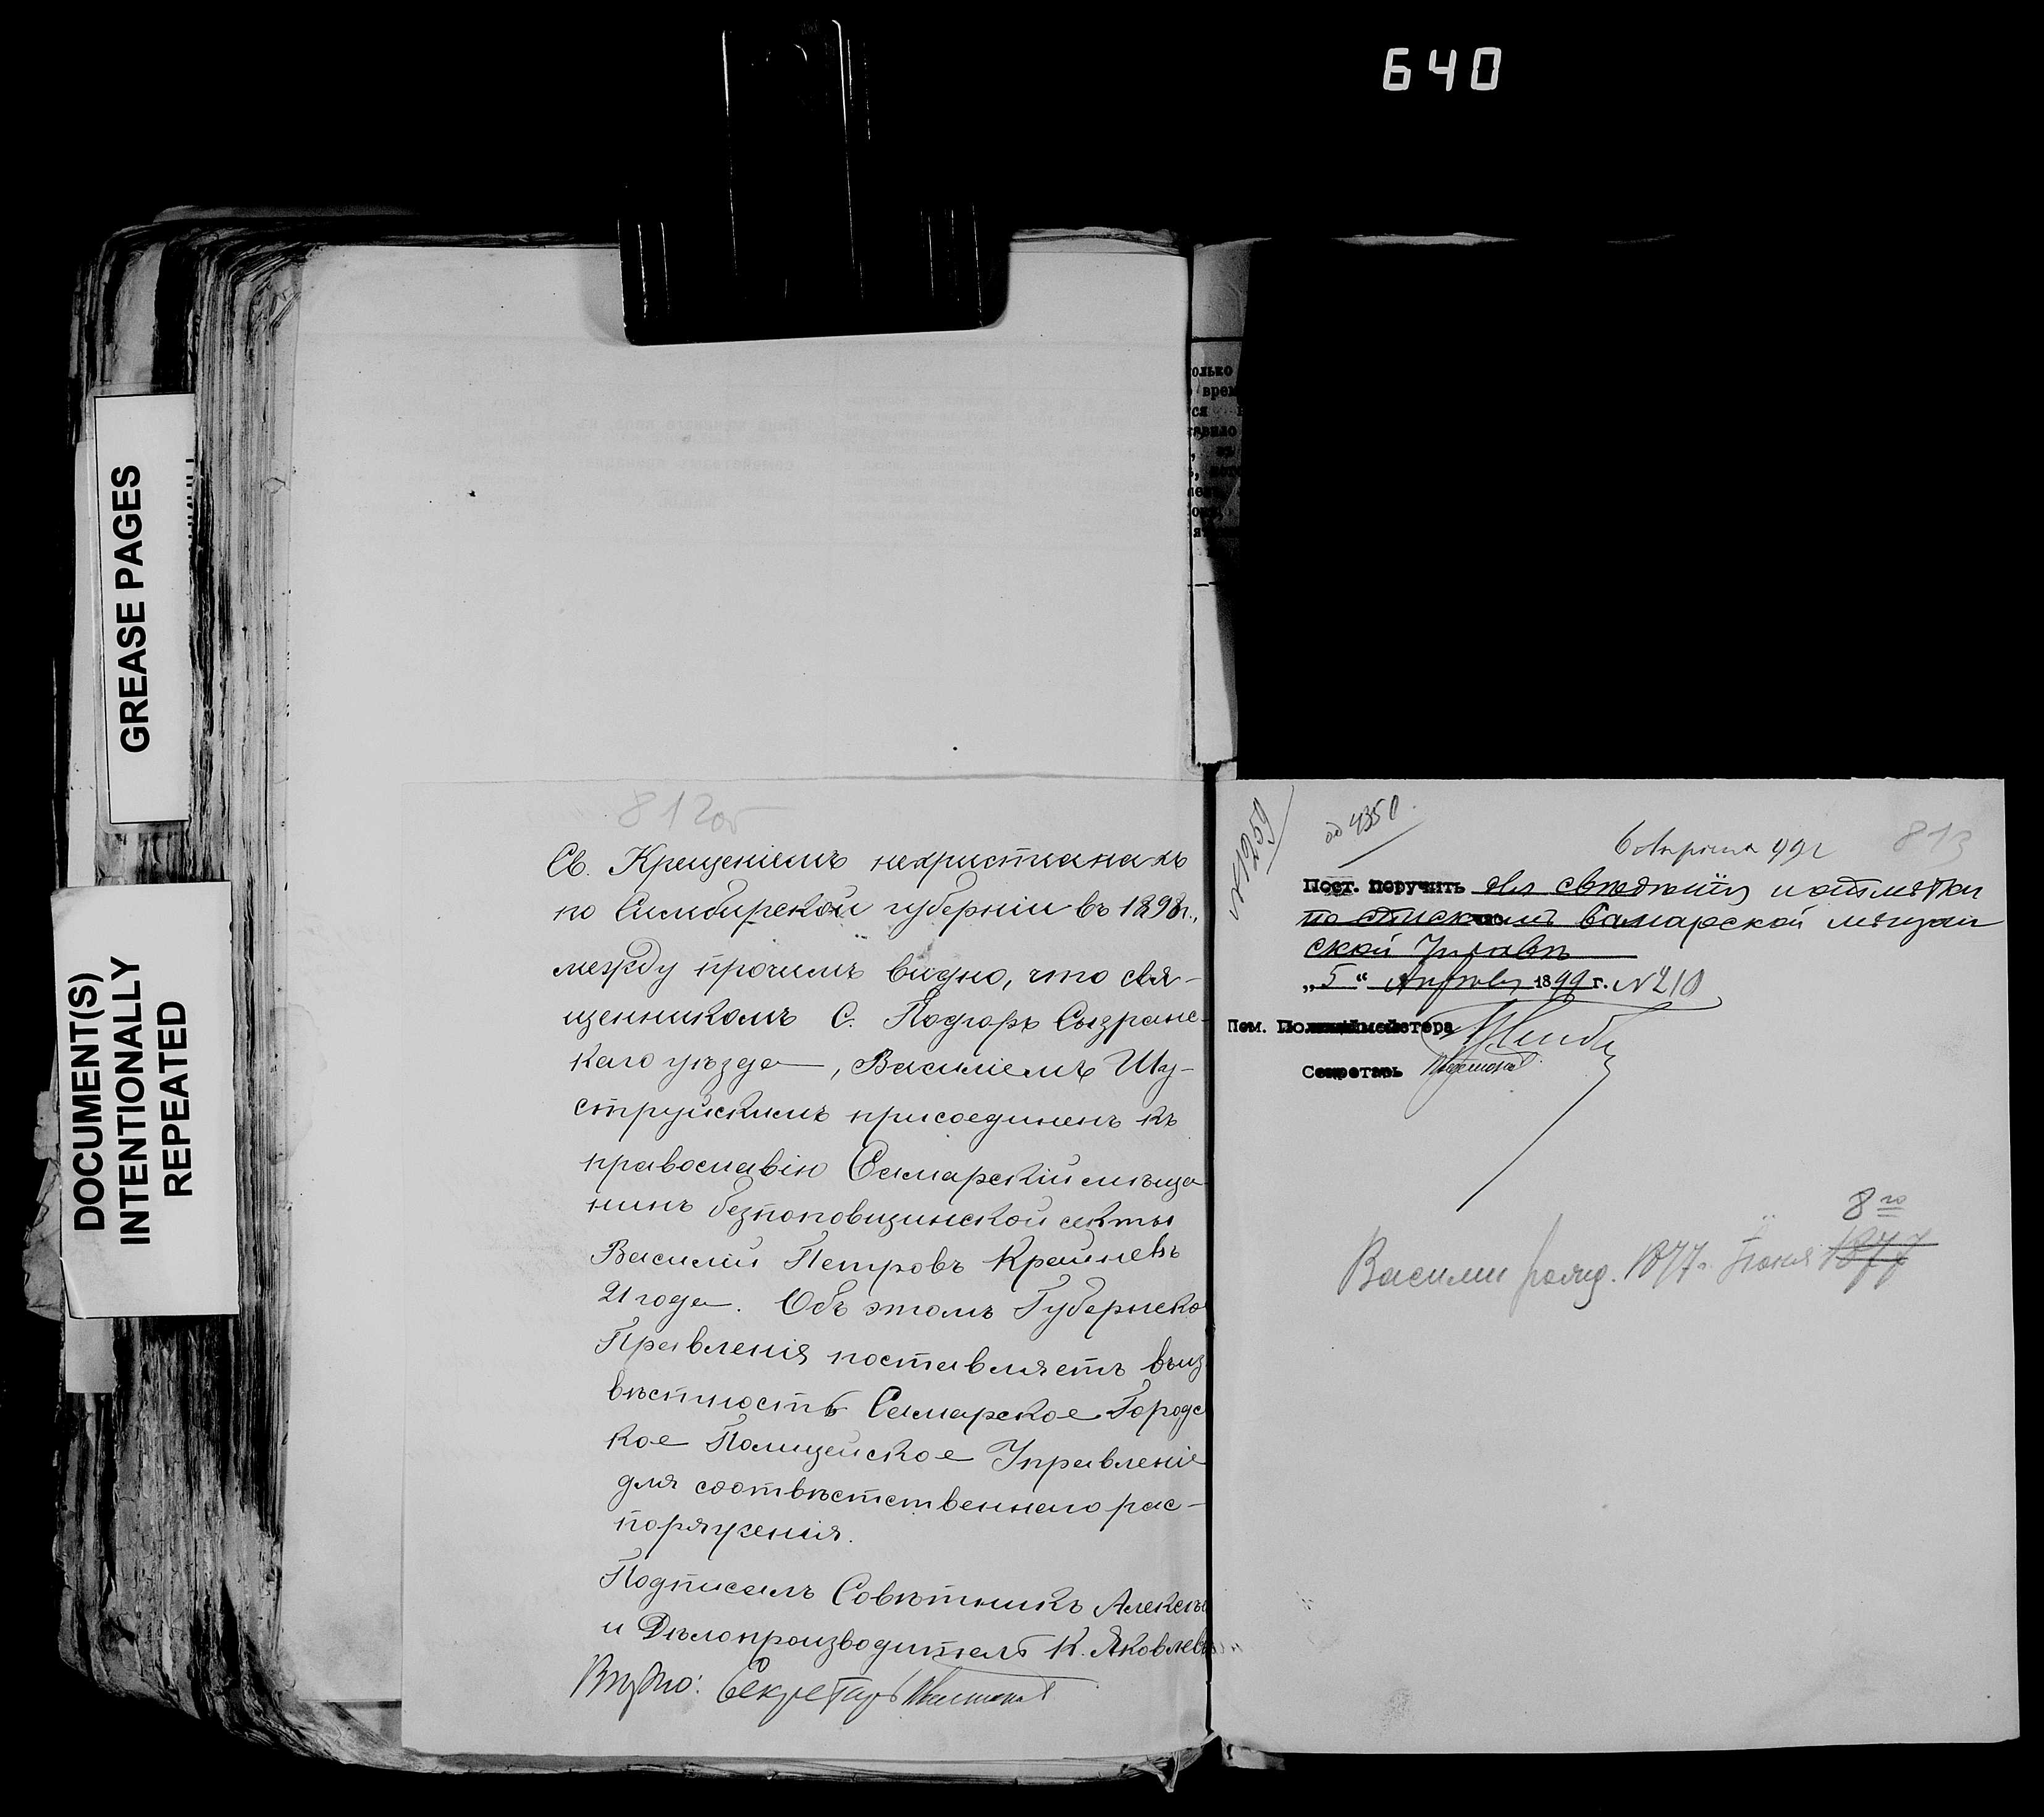 640
GREASE PAGES
DOCUMENT(S)
INTENTIONALLY
REPEATED
812об
Св. Крещеніемъ нехристіанахъ
по Симбирской губерніи въ 1898г.,
между прочимъ видно, что свя-
щенникомъ С. Подгоръ Сызранс-
каго уѣзда, Василіемъ Шу-
струйскимъ присоединенъ къ
православію Самарскій мѣща
нинъ безпоповщинской секты
Василій Петровъ Крайневъ
21 года. Объ этомъ Губернско
Правленія поставляетъ въ из
вѣстность Самарское Городс
кое Полицейское Управленіе
для соотвѣтственнаго рас-
поряженія.
Подписалъ Совѣтникъ Алексѣ
и Дѣлопроизводитель К. Яковлевъ
Вѣрно: Секретарь
олько
врем
ся
тавило
№1259
об 4350
6 Апрѣля 99г
813
Пост. поручить для свѣдѣнія и отмѣтки
по спискамъ Самарской мѣщан
ской Управѣ
„5“ Апрѣля 1899 г. №210
Пом. Полиціймейстера
Секретарь
8го
Василий рожд. 1877г. Іюня 1877